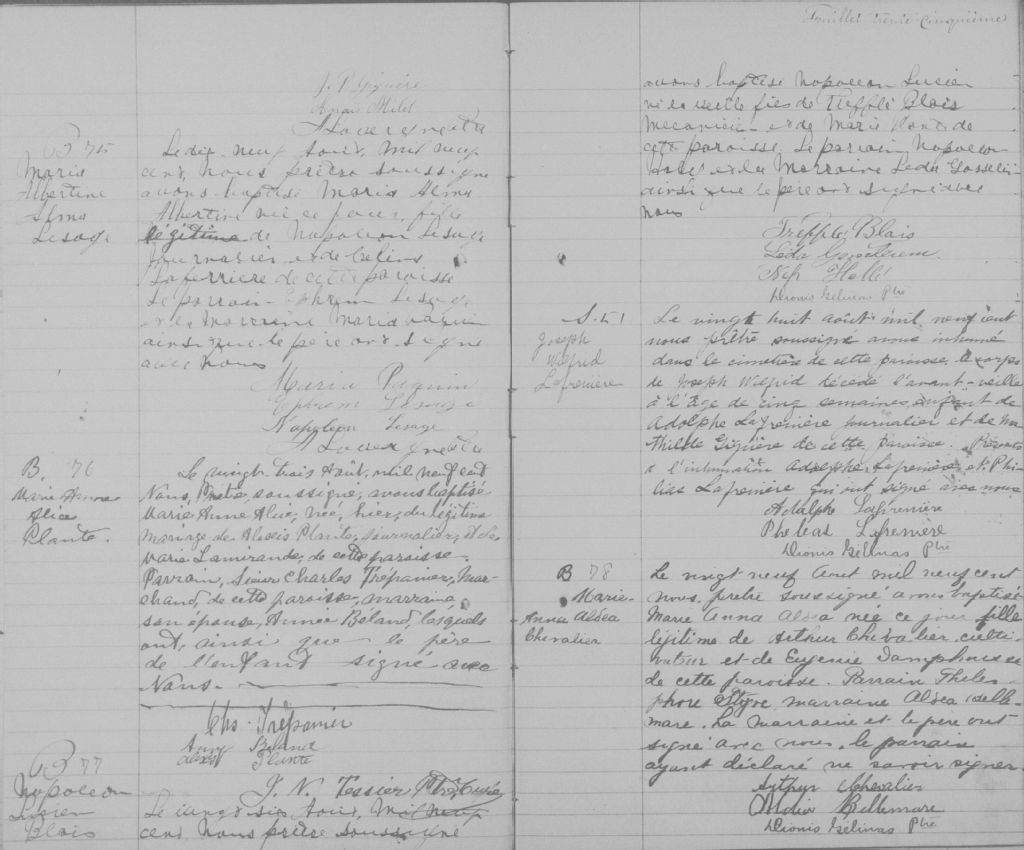 J. P. Giguère
Anais Milot
B 75
Maria
Albertine
Alma
Lesage
Le dix-neuf Aout, mil neuf
cent, nous prètre soussigné
avons baptisé Maria Alma
Albertine née ce jour, fille
légitime de Napoleon Lesage
journalier, et de Celina
Laferriere de cette paroisse
Le parrain Ephrem Lesage
et la Marraine Maria Paquin
ainsi que le père ont signé
avec nous
Maria Paquin
Ephrem Lesage
Napoleon Lesage
B. 76
Marie Anne
Alice
Plante.
Le vingt trois Août, mil neuf cent
Nous, Prêtre, soussigné, avons baptisé
Marie Anne Alice, née, hier, du légitime
mariage de Alexis Plante, journalier, et de
Marie Lamirande, de cette paroisse.
Parrain, Sieur Charles Trépanier, Mar-
chand, de cette paroisse, marraine
son épouse, Annie Béland, lesquels
ont, ainsi que le père
de l'enfant signé avec
Nous.
Chs. Trépanier
Anny Beland
Alexis Plante
J. N. Tessier Ptre Curé
B 77
Napoleon
Lucien
Blais
Le vingt six Aout, Mil neuf
cent nous prètre soussigné
Feuillet trente cinquième
avons baptisé Napoleon Lucien
né la veille fils de Trefflé Blais
mecanicien et de Marie
cette paroisse. Le parrain Napoleon
et la Marraine Leda Gosselin
ainsi que le père ont signé avec
nous
Trefflé Blais
Léda
Nap
Dionis Gélinas Ptre
S. 51
Joseph
Wilfrid
Lafrenière
Le vingt huit août mil neuf cent
nous prêtre soussigné avons inhumé
dans le cimetière de cette paroisse le corps
de Joseph Wilfrid décédé l'avant-veille
à l'âge de cinq semaines, enfant de
Adolphe Lafrenière journalier et de Ma
thilde Giguère de cette paroisse. Présents
à l'inhumation Adolphe Lafrenière et Phi-
lias Lafrenière qui ont signé avec nous
Adolphe Lafrenière
Phileas Lafrenière
Dionis Gélinas Ptre
B 78
Marie-
Anna Aldéa
Chevalier
Le vingt neuf Aout mil neuf cent
nous, prêtre soussigné avons baptisé
Marie Anna Aldéa née ce jour fille
légitime de Arthur Chevalier culti-
vateur et de Eugenie Damphousse
de cette paroisse. Parrain Théles-
phore marraine Aldéa Belle-
mare. La marraine et le père ont
signé avec nous. le parrain
ayant déclaré ne savoir signer.
Arthur Chevalier
Aldéa Bellemare
Dionis Gélinas Ptre